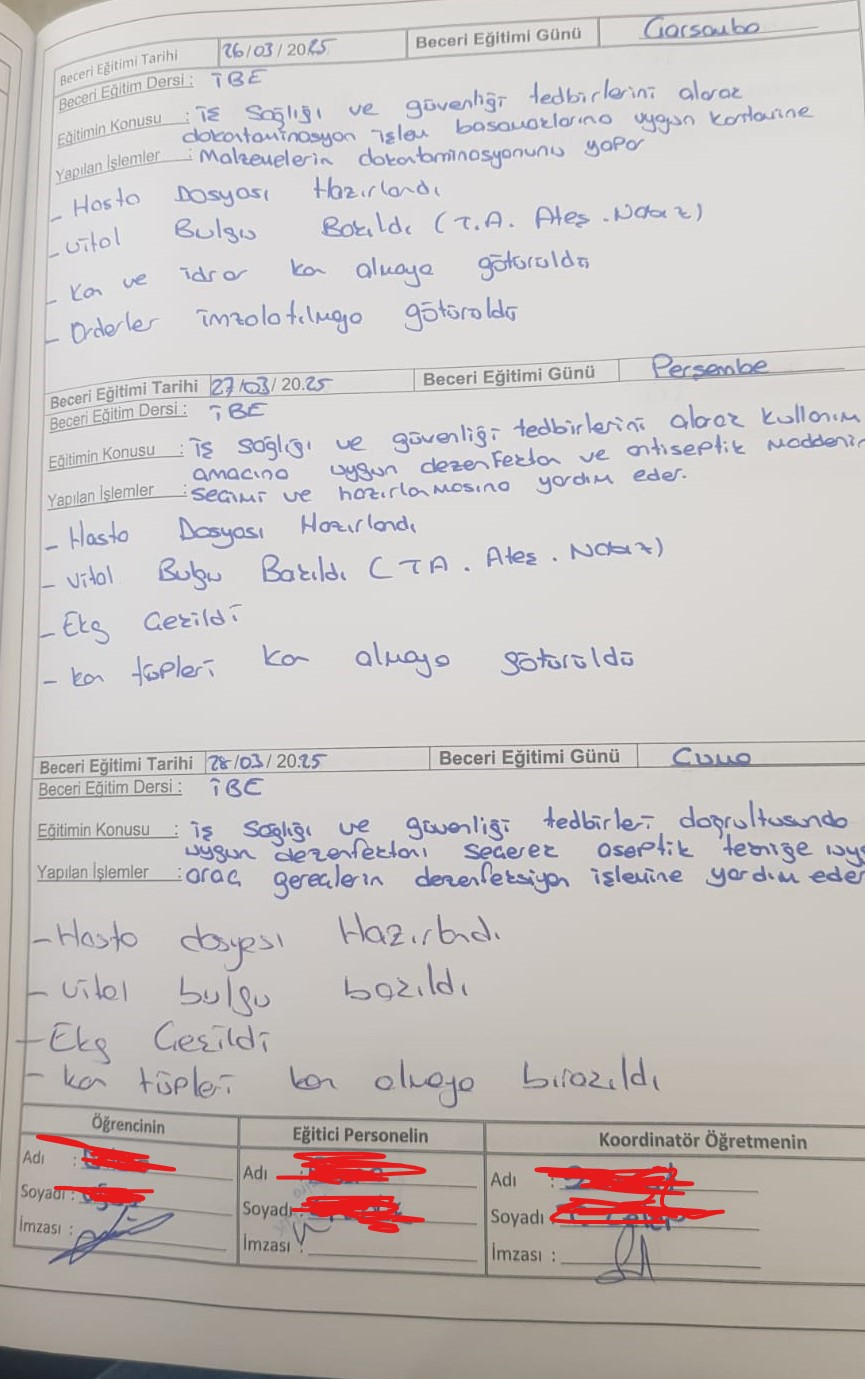 Beceri Eğitimi Tarihi 26/03/2025 Beceri Eğitimi Günü Çarşamba
Beceri Eğitim Dersi : İBE
Eğitimin Konusu : iş Sağlığı ve güvenliği tedbirlerini alarak
dekontaminasyon işlem basamaklarına uygun kontamine
Yapılan İşlemler : Malzemelerin dekontaminasyonunu yapar
- Hasta Dosyası Hazırlandı
- Vital Bulgu Bakıldı (T.A. Ateş . Nabız)
- Kan ve idrar kan almaya götürüldü
- Orderler imzalatılmaya götürüldü
Beceri Eğitimi Tarihi 27/03/2025 Beceri Eğitimi Günü Perşembe
Beceri Eğitim Dersi : İBE
Eğitimin Konusu : iş sağlığı ve güvenliği tedbirlerini alarak kullanım
amacına uygun dezenfektan ve antiseptik maddenin
Yapılan İşlemler : seçimi ve hazırlanmasına yardım eder.
- Hasta Dosyası Hazırlandı
- Vital Bulgu Bakıldı (TA . Ateş . Nabız)
- Ekg Çekildi
- kan tüpleri kan almaya götürüldü
Beceri Eğitimi Tarihi 28/03/2025 Beceri Eğitimi Günü Cuma
Beceri Eğitim Dersi : İBE
Eğitimin Konusu : iş Sağlığı ve güvenliği tedbirleri doğrultusunda
uygun dezenfektanı seçerek aseptik tekniğe uyg
Yapılan İşlemler : araç gereçlerin dezenfeksiyon işlemine yardım eder
- Hasta dosyası Hazırlandı
- Vital bulgu bakıldı
- Ekg Çekildi
- kan tüpleri kan almaya bırakıldı
Öğrencinin Eğitici Personelin Koordinatör Öğretmenin
Adı : Adı : Adı :
Soyadı : Soyadı : Soyadı :
İmzası : İmzası : İmzası :